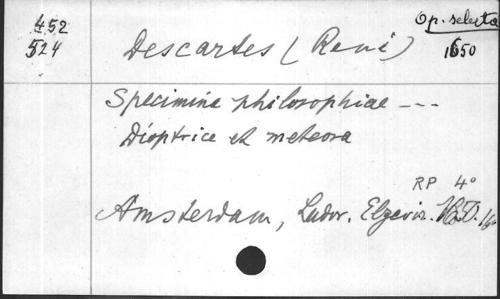 452 Op. selecta
524 Descartes (René) 1650
Specimina philosophiae ---
Dioptrice et meteora
RP 4°
Amsterdam, Ludov. Elzevir.